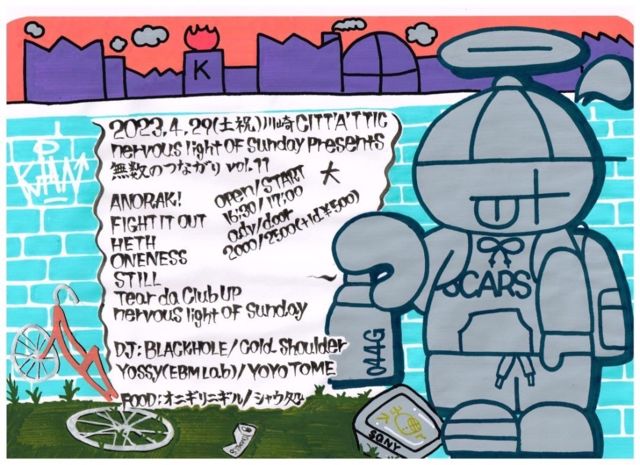 K
2023.4.29(土祝)川崎CITTA'TTIC
nervous light of Sunday Presents
無数のつながり vol.11
ANORAK!
FIGHT IT OUT
HETH
ONENESS
STILL
Tear da Club UP
nervous light of Sunday
open/START
16:30/17:00
adv/door
2000/2500(+1d.¥500)
大
DJ:BLACKHOLE/Cold Shoulder
YOSSY(EBM Lab)/YOYO TOME
FOOD:オニギリニギル/シャウタク
SCARS
044G
SONY